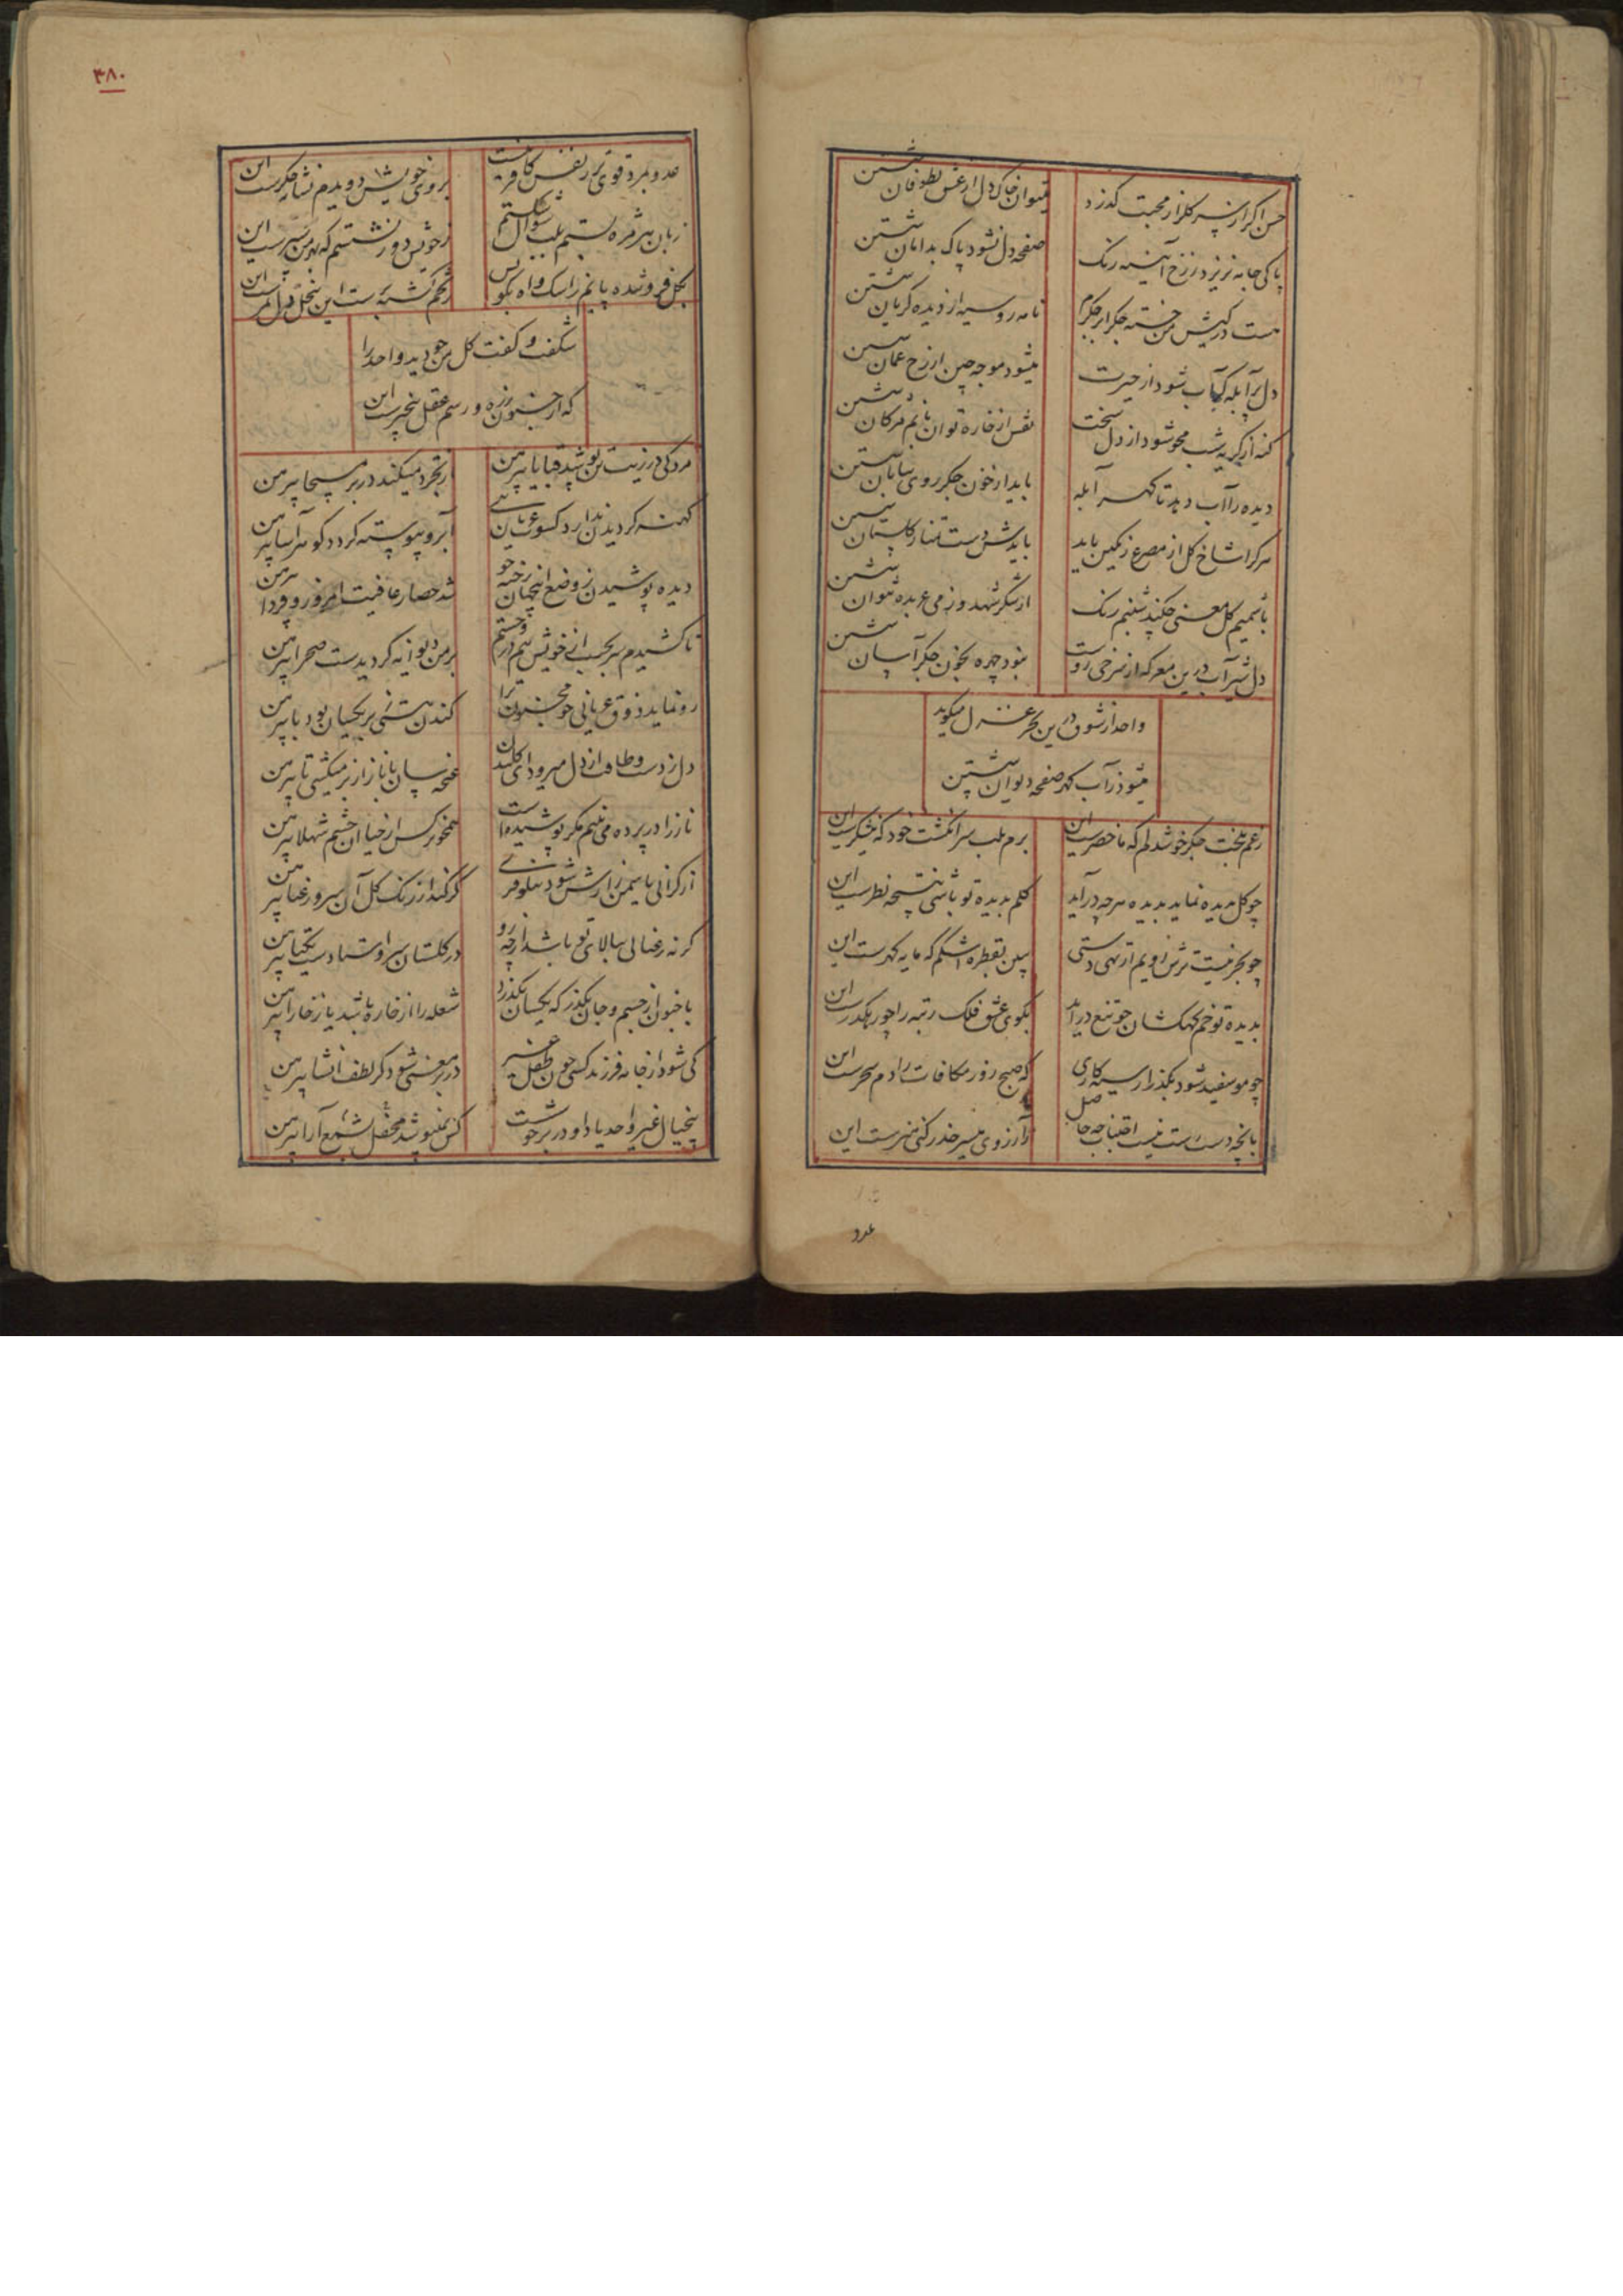 حسن اگر از سر گلزار محبت گذرد
میتوان خاک دل از غش بطوفان شستن
پاکی جامه نریزد ز رخ آینه رنگ
صفحه دل نشود پاک بدامان شستن
هست در کیش من خسته جگر
نامه روسیه از دیده گریان شستن
دل پر آبله آب شود از حیرت
میشود موجه چین از رخ عمان شستن
گنه از گریه شب محو شود از دل سخت
نقش از خاره توان با نم مژگان شستن
دیده را آب دهد تا گهر آبله
باید از خون جگر روی بیابان شستن
هر کرا شاخ گل از مصرع رنگین باید
بایدش دست تمنا ز گلستان شستن
با شمیم گل معنی چکند شبنم رنگ
از شکر شهد و ز می عربده نتوان شستن
دل شیر آب درین معرکه از سرخی روست
نبود چهره بخون جگر آسان شستن
واحد از شوق درین بحر غزل میگوید
میشود ز آب گهر صفحه دیوان شستن
بلخت جگر خوشدلم که ما حضرست این
برم بلب سر انگشت خود که نیشکرست این
چو گل بدیده نماید بدیده هر چه درآید
گلم بدیده تو باشی نتیجه نظرست این
چو بحر نیست ترش رویم از تهی دستی
ببین بقطره اشکم که مایه گهرست این
بدیده تو خم کهکشان چو تیغ درآید
بکوی عشق فلک رتبه را چو رهگذرست این
چو مو سفید شود بگذر از سیه کاری
که صبح روز مکافات را دم سحرست این
بآنچه دست است نیست اجتناب چه حاصل
ز آرزوی میسر حذر کنی هنرست این
عدو
۳۸۰
عدو نمرد قوی تر ز نفس کافر نیست
بروی خویش دویدم نشانه جگرست این
زبان هر مژه بستم بلب سوال شکستم
ز خویش دور نشستم که بهترین سپرست این
بگل فرو شده پایم ز اشک و آه
شکفت و گفت گل من چو دید واحد را
که از جنون زده و رسم عقل بیخبرست این
مرد کی در زینت تن پوشد قبا یا پیرهن
از تجرد میکند در بر مسیحا پیرهن
کهنه گردیدن ندارد کسوت عریان تنی
آبرو پیوسته گردد گوهرآسا پیرهن
دیده پوشیدن ز وضع اینجهان رخت
شد حصار عافیت امروز و فردا پیرهن
تا کشیدم سر بجیب از خویش هم
بر من دیوانه گردیدست صحرا پیرهن
رو نماید ذوق عریانی چو مجنون ترا
کندن هستی بر یکسان بود با پیرهن
دل ز دست و طاقت از دل میرود ای گلبدن
غنچه سان با ناز از بر میکشی تا پیرهن
ناز را در پرده می بینم مگر پوشیده است
همچو نرگس از حیا آن چشم شهلا پیرهن
از گرانی یاسمن زارش شود نیلوفری
گر کند از رنگ گل آن سرو رعنا پیرهن
گر نه رعنائی ببالای تو باشد از چه رو
در گلستان سر و استادست یکتا پیرهن
با جنون از جسم و جان بگذر که یکسان بگذرد
شعله را از خاره باشد یا ز خارا پیرهن
کی شود از جامه فرزند کسی چون طفل غیر
در بر معنی شود گر لطف انشا پیرهن
بیخیال غیر واحد یاد او در بر خوشست
کس نمیپوشد بمحفل شمع آرا پیرهن